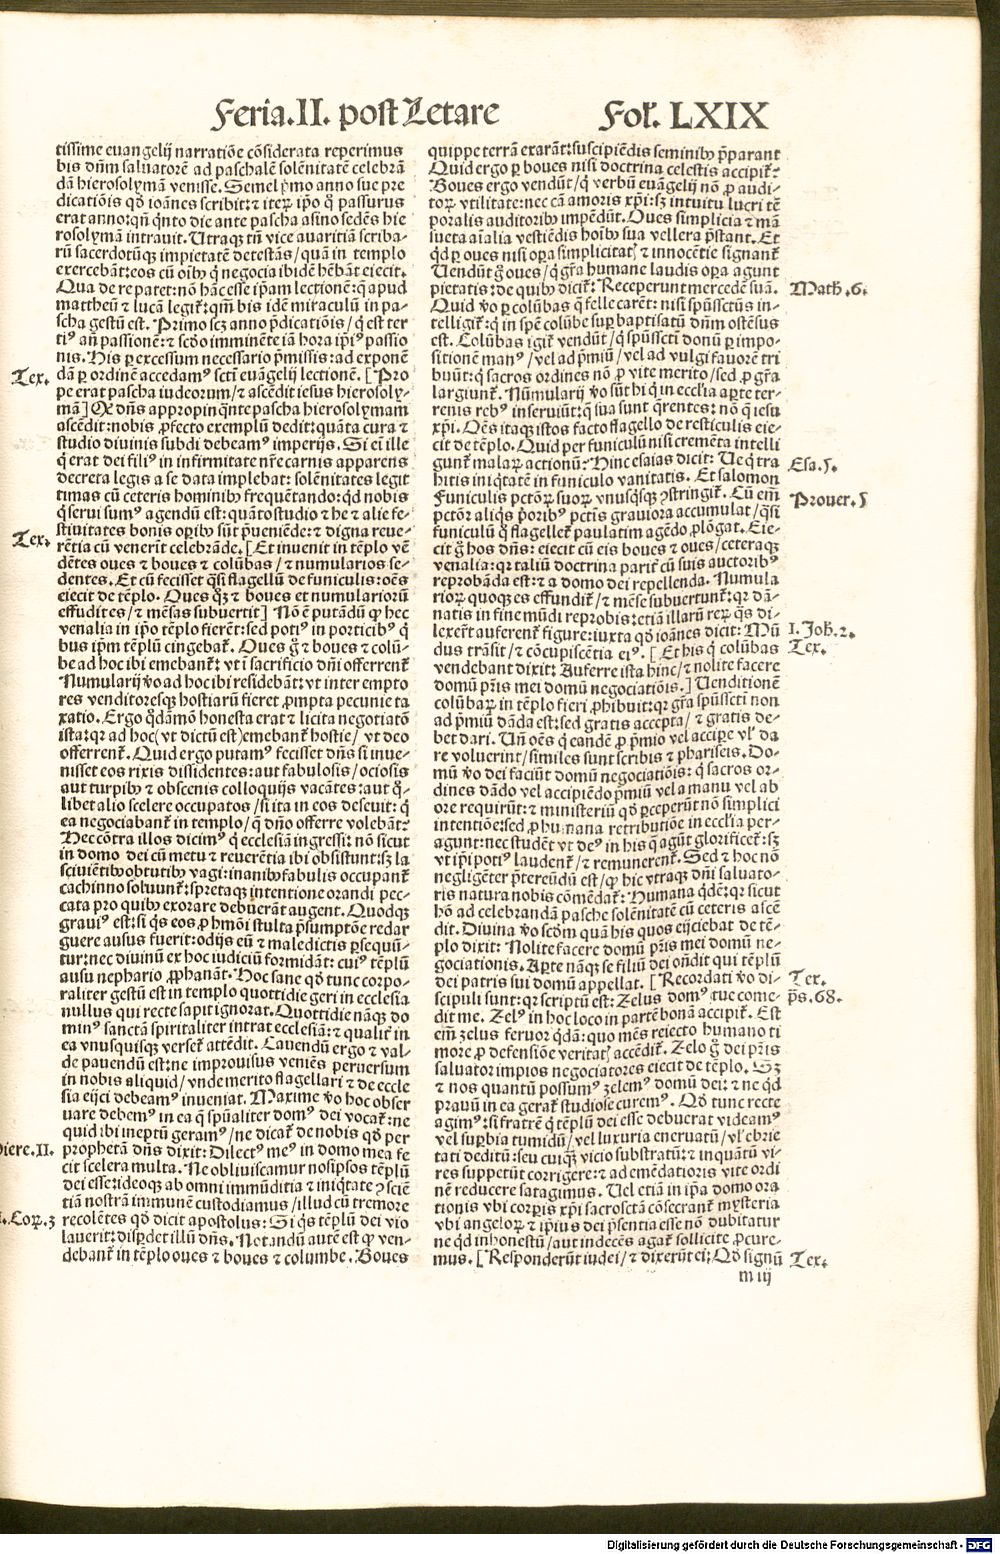 Feria.II. post Letare Fol. LXIX
tissime euangelij narratiōe cōsiderata reperimus
bis dñm saluatorē ad paschalē solēnitatē celebrā
dā hierosolymā venisse. Semel p̄mo anno sue pre
dicatiōis qđ ioānes scribit: ⁊ iteꝝ ip̄o q̇ passurus
erat anno: qñ q̇nto die ante pascha asino sedēs hie
rosolymā intrauit. Utraqꝫ tñ vice auaritiā scriba-
rū sacerdotūqꝫ impietatē detestās/ quā in templo
exercebāt: eos cū oībꝰ q̇ negocia ibidē hēbāt eiecit.
Qua de re patet: nō hāc esse ip̄am lectionē: q̄ apud
mattheū ⁊ lucā legit̄: qm̄ bis idē miraculū in pa-
scha gestū est. Primo scꝫ anno p̄dicatiōis/ q̇ est ter
tiꝰ añ passionē: ⁊ scđo imminēte iā hora ip̄iꝰ passio
nis. His ꝑ excessum necessario p̄missis: ad exponē
Tex. dā ꝑ ordinē accedamꝰ scti euāgelij lectionē. [Pro
pe erat pascha iudeorum/ ⁊ ascēdit iesus hierosoly-
mā] Qđ dñs appropinq̄nte pascha hierosolymam
ascēdit: nobis ꝓfecto exemplū dedit: quāta cura ⁊
studio diuinis subdi debeamꝰ imperijs. Si eī ille
q̇ erat dei filiꝰ in infirmitate nr̄e carnis apparens
decreta legis a se data implebat: solēnitates legit
timas cū ceteris hominibꝰ frequētando: qđ nobis
q̇ serui sumꝰ agendū est: quāto studio ⁊ he ⁊ alie fe-
stiuitates bonis oꝑibꝰ sūt p̄ueniēde: ⁊ digna reue-
Tex. rētia cū venerīt celebrāde. [Et inuenit in tēplo vē
dētes oues ⁊ boues ⁊ colūbas/ ⁊ numularios se-
dentes. Et cū fecisset q̇si flagellū de funiculis: oēs
eiecit de tēplo. Oues q̇ꝫ ⁊ boues et numulariorū
effudit es/ ⁊ mēsas subuertit] Nō ē putādū qꝫ hec
venalia in ip̄o tēplo fierēt: sed potiꝰ in porticibꝰ q̇
bus ip̄m tēplū cingebat̄. Oues g̊ ⁊ boues ⁊ colū-
be ad hoc ibi emebant̄: vt ī sacrificio dñi offerrent̄
Numularij v̄o ad hoc ibi residebāt: vt inter empto
res venditoresqꝫ hostiarū fieret ꝓmpta pecunie ta
xatio. Ergo q̇dāmō honesta erat ⁊ licita negotiatō
ista: qꝛ ad hoc (vt dictū est) emebant̄ hostie/ vt deo
offerrent̄. Quid ergo putamꝰ fecisset dñs si inue-
nisset eos rixis dissidentes: aut fabulosis/ ociosis
aut turpibꝰ ⁊ obscenis colloquijs vacātes: aut q̊-
libet alio scelere occupatos/ si ita in eos deseuit: q̇
ea negociabant̄ in templo/ q̄ dño offerre volebāt?
Hec cōtra illos dicimꝰ q̇ ecclesiā ingressi: nō sicut
in domo dei cū metu ⁊ reuerētia ibi obsistunt: sꝫ la
sciuiētibꝰ obtutibꝰ vagi: inanibꝰ fabulis occupant̄
cachinno soluunt̄: spretaqꝫ intentione orandi pec-
cata pro quibꝰ exorare debuerāt augent. Quodqꝫ
grauiꝰ est: si q̇s eos ꝓ hmōi stulta p̄sumptōe redar
guere ausus fuerit: odijs eū ⁊ maledictis ꝑsequū-
tur: nec diuinū ex hoc iudiciū formidāt: cuiꝰ tēplū
ausu nephario ꝓphanāt. Hoc sane qđ tunc corpo-
raliter gestū est in templo quottidie geri in ecclesia
nullus qui recte sapit ignorat. Quottidie nāqꝫ do
minꝰ sanctā spiritaliter intrat ecclesiā: ⁊ qualit̄ in
ea vnusquisqꝫ verset̄ attēdit. Cauendū ergo ⁊ val-
de pauendū est: ne improuisus veniēs peruersum
in nobis aliquid/ vnde merito flagellari ⁊ de eccle
sia eijci debeamꝰ inueniat. Maxime v̄o hoc obser
uare debemꝰ in ea q̄ spūaliter domꝰ dei vocat̄: ne
quid ibi ineptū geramꝰ/ ne dicat̄ de nobis qđ per
Hiere.II. prophetā dñs dixit: Dilectꝰ meꝰ in domo mea fe
cit scelera multa. Ne obliuiscamur nosip̄sos tēplū
dei esse: ideoqꝫ ab omni immūditia ⁊ iniq̇tate ꝯsciē
tiā nostrā immunē custodiamus/ illud cū tremore
I.Coꝝ.3 recolētes qđ dicit apostolus: Si q̇s tēplū dei vio
lauerit: disꝑdet illū dñs. Notandū autē est qꝫ ven-
debant̄ in tēplo oues ⁊ boues ⁊ columbe. Boues
quippe terrā exarāt: suscipiēdis seminibꝰ p̄parant
Quid ergo ꝑ boues nisi doctrina celestis accipit̄?
Boues ergo vendūt/ q̇ verbū euāgelij nō ꝓ audi-
toꝝ vtilitate: nec cā amoris xp̄i: sꝫ intuitu lucri tē
poralis auditoribꝰ impēdūt. Oues simplicia ⁊ mā
sueta aīalia vestiēdis hoībꝰ sua vellera p̄stant. Et
q̇d ꝑ oues nisi oꝑa simplicitatꝭ ⁊ innocētie signant̄
Uendūt g̊ oues/ q̇ gr̄a humane laudis oꝑa agunt
pietatis: de quibꝰ dicit̄: Receperunt mercedē suā. Math.6.
Quid v̄o ꝑ colūbas q̄ felle carēt: nisi spūssctūs in-
telligit̄: q̇ in spēm colūbe suꝑ baptisatū dñm ostēsus
est. Colūbas igit̄ vendūt/ q̇ spūsscti donū ꝑ impo-
sitionē manꝰ/ vel ad p̄miū/ vel ad vulgi fauorē tri
buūt: q̇ sacros ordines nō ꝓ vite merito/ sed ꝓ gr̄a
largiunt̄. Nūmularij v̄o sūt hi q̇ in eccl'ia aꝑte ter-
renis rebꝰ inseruiūt: q̇ sua sunt q̄rentes: nō q̄ iesu
xp̄i. Oēs itaqꝫ istos facto flagello de resticulis eie-
cit de tēplo. Quid per funiculū nisi cremēta intelli
gunt̄ malaꝝ actionū? Hinc esaias dicit: Ue q̇ tra Esa.5.
hitis iniq̇tatē in funiculo vanitatis. Et salomon
Funiculis pctōꝝ suoꝝ vnusq̇sqꝫ ꝯstringit̄. Cū em̄ Prouer.5
pctōꝛ aliq̇s p̄oribꝰ pctīs grauiora accumulat/ q̇si
funiculū q̊ flagellet̄ paulatim agēdo ꝓlōgat. Eie-
cit g̊ hos dñs: eiecit cū eis boues ⁊ oues/ ceteraqꝫ
venalia: qꝛ taliū doctrina parit̄ cū suis auctoribꝰ
reprobāda est: ⁊ a domo dei repellenda. Numula
rioꝝ quoqꝫ es effundit̄/ ⁊ mēse subuertunt̄: qꝛ dā-
natis in fine mūdi reprobis: etiā illarū reꝝ q̄s di-
lexer̄t auferent̄ figure: iuxta qđ ioānes dicit: Mū I.Joh.2.
dus trāsit/ ⁊ cōcupiscētia eiꝰ. [Et his q̇ colūbas Tex.
vendebant dixit: Auferte ista hinc/ ⁊ nolite facere
domū pr̄is mei domū negociatiōis.] Uenditionē
colūbaꝝ in tēplo fieri ꝓhibuit: qꝛ gr̄a spūsscti non
ad p̄miū dāda est: sed gratis accepta/ ⁊ gratis de-
bet dari. Uñ oēs q̇ eandē ꝓ p̄mio vel accipe vl' da
re voluerint/ similes sunt scribis ⁊ phariseis. Do-
mū v̄o dei faciūt domū negociatiōis: q̇ sacros or-
dines dādo vel accipiēdo p̄miū vel a manu vel ab
ore requirūt: ⁊ ministeriū qđ ꝑceperūt nō simplici
intentiōe: sed ꝓ humana retributiōe in eccl'ia per-
agunt: nec studēt vt deꝰ in his q̄ agūt glorificet̄: sꝫ
vt ip̄i potiꝰ laudent̄/ ⁊ remunerent̄. Sed ⁊ hoc nō
negligēter p̄tereūdū est/ qꝫ hic vtraqꝫ dñi saluato-
ris natura nobis cōmēdat̄: Humana q̇dē: qꝛ sicut
hō ad celebrandā pasche solēnitatē cū ceteris ascē
dit. Diuina v̄o scđm quā his quos eijciebat de tē-
plo dixit: Nolite facere domū pr̄is mei domū ne-
gociationis. Aꝑte nāqꝫ se filiū dei oñdit qui tēplū
dei patris sui domū appellat. [Recordati v̄o di- Tex.
scipuli sunt: qꝛ scriptū est: Zelus domꝰ tue come- p̄s.68.
dit me. Zelꝰ in hoc loco in partē bonā accipit̄. Est
em̄ zelus feruor q̇dā: quo mēs reiecto humano ti
more ꝓ defensiōe veritatꝭ accēdit̄. Zelo g̊ dei pr̄is
saluator impios negociatores eiecit de tēplo. Sꝫ
⁊ nos quantū possumꝰ zelemꝰ domū dei: ⁊ ne q̇d
prauū in ea gerat̄ studiose curemꝰ. Qđ tunc recte
agimꝰ: si fratrē q̇ tēplū dei esse debuerat videamꝰ
vel suꝑbia tumidū/ vel luxuria eneruatū/ vl' ebrie
tati deditū: seu cuiq̇ꝫ vicio substratū: ⁊ inquātū vi-
res suppetūt corrigere: ⁊ ad emēdatioris vite ordi
nē reducere satagimus. Uel etiā in ip̄a domo ora
tionis vbi corꝑis xp̄i sacrosctā cōsecrant̄ mysteria
vbi angeloꝝ ⁊ ip̄ius dei p̄sentia esse nō dubitatur
ne q̇d inhonestū/ aut indecēs agat̄ sollicite ꝓcure-
mus. [Responderūt iudei/ ⁊ dixerūt ei: Qđ signū Tex.
m iij
Digitalisierung gefördert durch die Deutsche Forschungsgemeinschaft - DFG